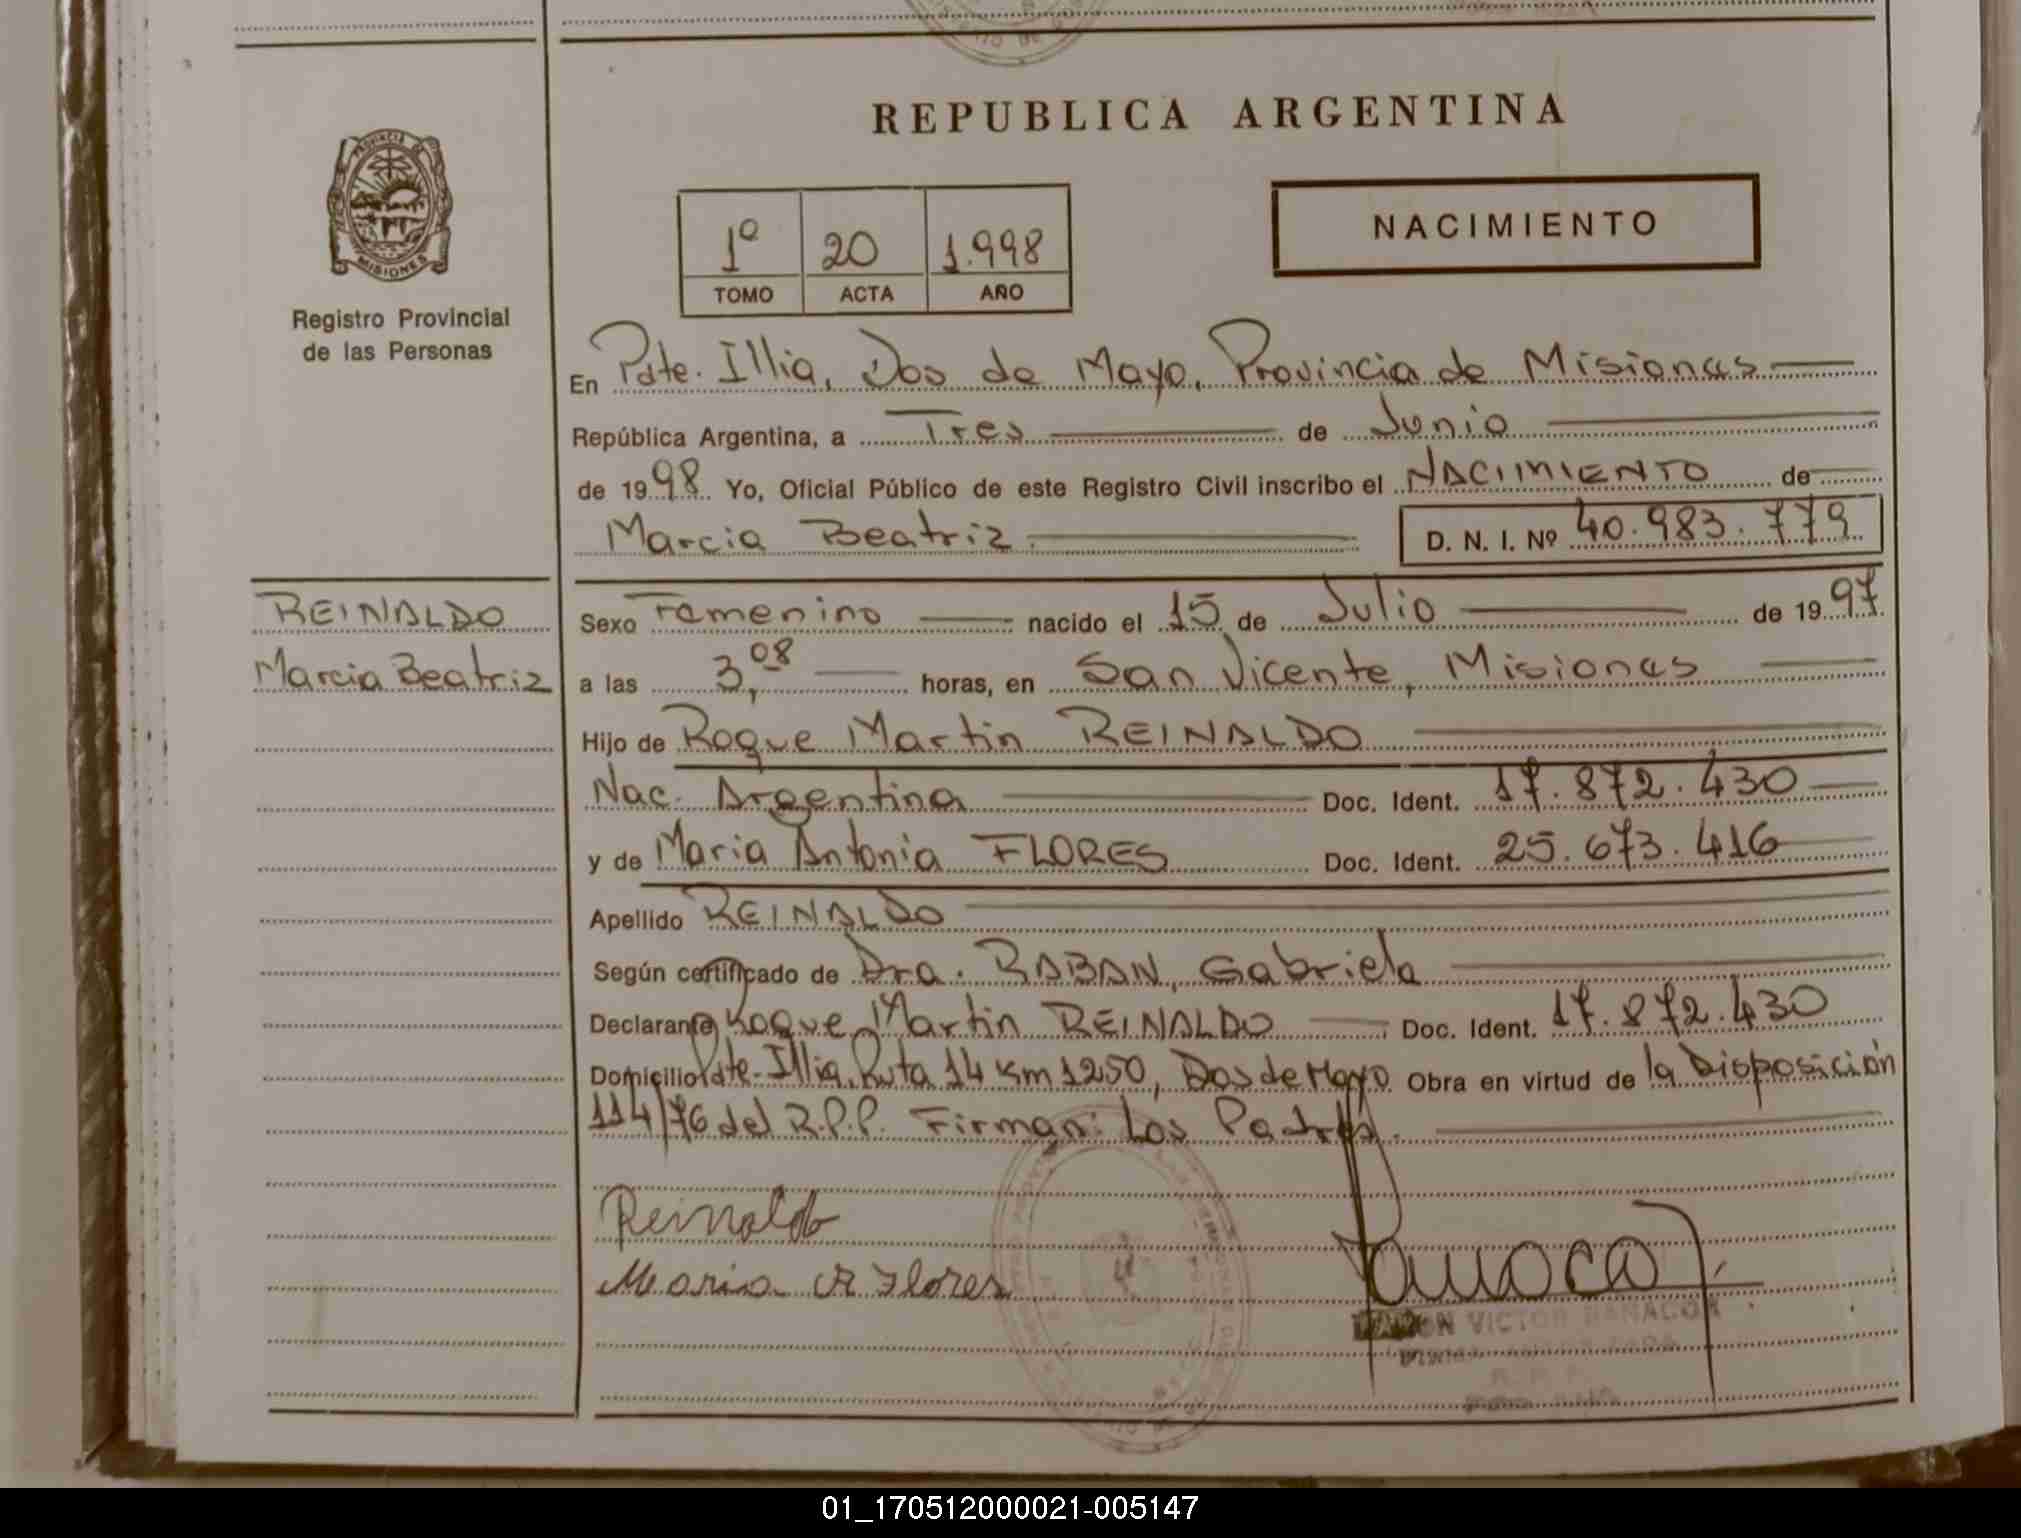 REPUBLICA ARGENTINA
PROVINCIA DE
MISIONES
Registro Provincial
de las Personas
1º 20 1.998
TOMO ACTA AÑO
NACIMIENTO
En Pdte. Illia, Dos de Mayo, Provincia de Misiones
República Argentina, a Tres de Junio
de 1998 Yo, Oficial Público de este Registro Civil inscribo el NACIMIENTO de
Marcia Beatriz D. N. I. Nº 40.983.779
REINALDO
Marcia Beatriz
Sexo Femenino nacido el 15 de Julio de 1997
a las 3,08 horas, en San Vicente, Misiones
Hijo de Roque Martin REINALDO
Nac. Argentina Doc. Ident. 17.872.430
y de Maria Antonia FLORES Doc. Ident. 25.673.416
Apellido REINALDO
Según certificado de Dra. RABAN, Gabriela
Declarante Roque Martin REINALDO Doc. Ident. 17.872.430
Domicilio Pdte. Illia, Ruta 14 Km 1250, Dos de Mayo Obra en virtud de la Disposición
114/76 del R.P.P. Firman: Los Padres.
Reinaldo
Maria A Flores
RAMON VICTOR
01_170512000021-005147